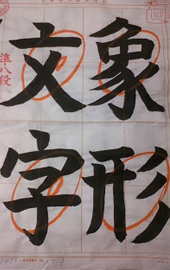 象形
文字
準八段